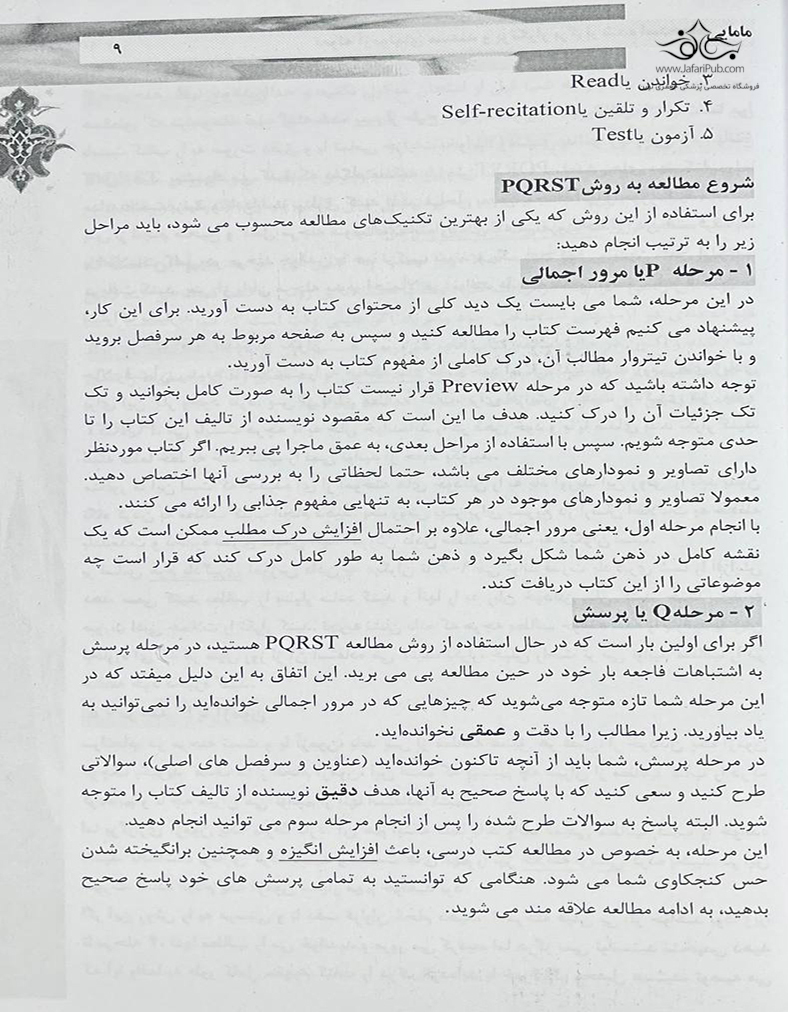 ۹
مامایی
www.JafariPub.com
فروشگاه تخصصی پزشکی جعفری نوین
۳. خواندن یاRead
۴. تکرار و تلقین یاSelf-recitation
۵. آزمون یاTest
شروع مطالعه به روشPQRST
برای استفاده از این روش که یکی از بهترین تکنیک‌های مطالعه محسوب می شود، باید مراحل
زیر را به ترتیب انجام دهید:
۱ - مرحله Pیا مرور اجمالی
در این مرحله، شما می بایست یک دید کلی از محتوای کتاب به دست آورید. برای این کار،
پیشنهاد می کنیم فهرست کتاب را مطالعه کنید و سپس به صفحه مربوط به هر سرفصل بروید
و با خواندن تیتروار مطالب آن، درک کاملی از مفهوم کتاب به دست آورید.
توجه داشته باشید که در مرحله Preview قرار نیست کتاب را به صورت کامل بخوانید و تک
تک جزئیات آن را درک کنید. هدف ما این است که مقصود نویسنده از تالیف این کتاب را تا
حدی متوجه شویم. سپس با استفاده از مراحل بعدی، به عمق ماجرا پی ببریم. اگر کتاب موردنظر
دارای تصاویر و نمودارهای مختلف می باشد، حتما لحظاتی را به بررسی آنها اختصاص دهید.
معمولا تصاویر و نمودارهای موجود در هر کتاب، به تنهایی مفهوم جذابی را ارائه می کنند.
با انجام مرحله اول، یعنی مرور اجمالی، علاوه بر احتمال افزایش درک مطلب ممکن است که یک
نقشه کامل در ذهن شما شکل بگیرد و ذهن شما به طور کامل درک کند که قرار است چه
موضوعاتی را از این کتاب دریافت کند.
۲ - مرحلهQ یا پرسش
اگر برای اولین بار است که در حال استفاده از روش مطالعه PQRST هستید، در مرحله پرسش
به اشتباهات فاجعه بار خود در حین مطالعه پی می برید. این اتفاق به این دلیل میفتد که در
این مرحله شما تازه متوجه می‌شوید که چیزهایی که در مرور اجمالی خوانده‌اید را نمی‌توانید به
یاد بیاورید. زیرا مطالب را با دقت و عمقی نخوانده‌اید.
در مرحله پرسش، شما باید از آنچه تاکنون خوانده‌اید (عناوین و سرفصل های اصلی)، سوالاتی
طرح کنید و سعی کنید که با پاسخ صحیح به آنها، هدف دقیق نویسنده از تالیف کتاب را متوجه
شوید. البته پاسخ به سوالات طرح شده را پس از انجام مرحله سوم می توانید انجام دهید.
این مرحله، به خصوص در مطالعه کتب درسی، باعث افزایش انگیزه و همچنین برانگیخته شدن
حس کنجکاوی شما می شود. هنگامی که توانستید به تمامی پرسش های خود پاسخ صحیح
بدهید، به ادامه مطالعه علاقه مند می شوید.